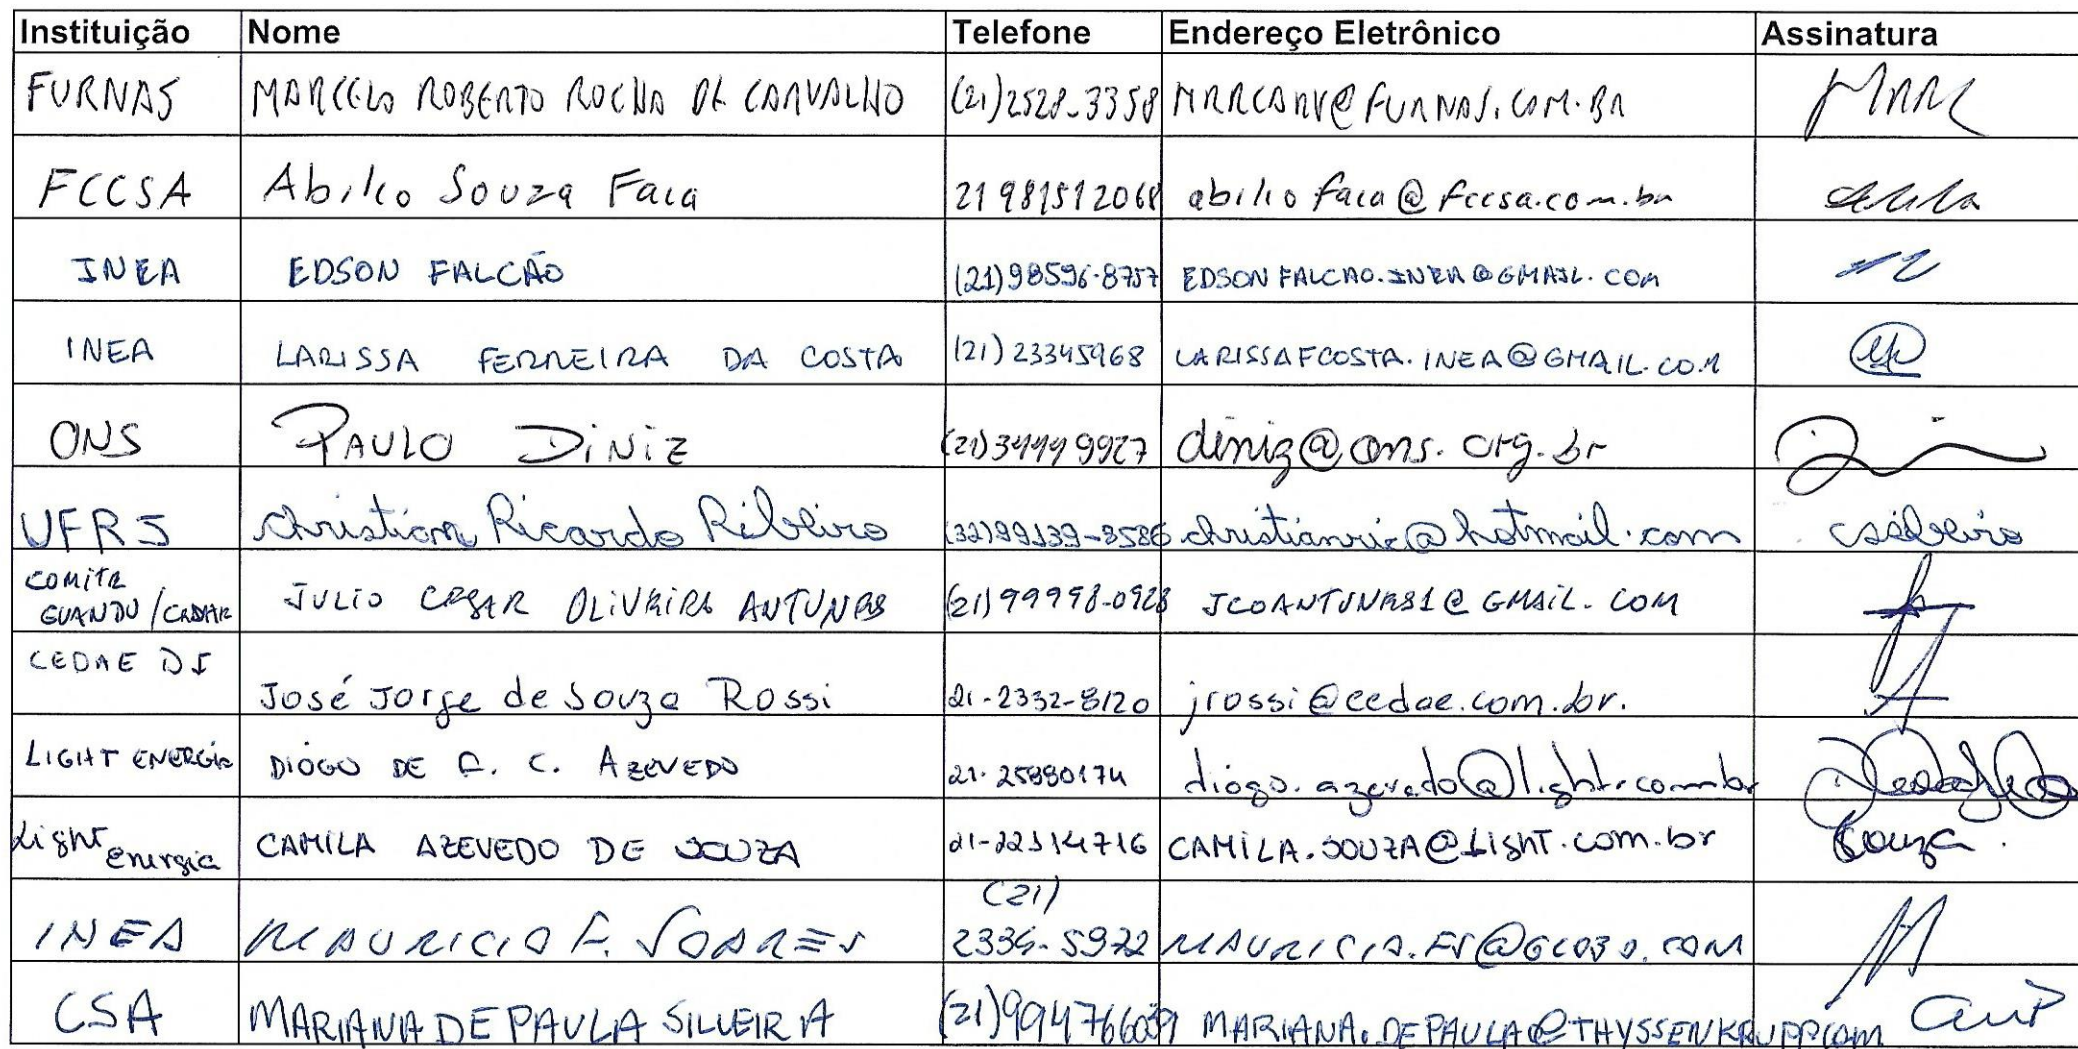 Instituição Nome Telefone Endereço Eletrônico Assinatura
FURNAS MARCELO ROBERTO ROCHA DE CARVALHO (21)2528-3358 MRRCARV@FURNAS.COM.BR
FCCSA Abilio Souza Faca 21981512068 abiliofaca@fccsa.com.br
INEA EDSON FALCÃO (21)98596-8757 EDSONFALCAO.INEA@GMAIL.COM
INEA LARISSA FERREIRA DA COSTA (21) 23345968 LARISSAFCOSTA.INEA@GMAIL.COM
ONS PAULO DINIZ (21)34449927 diniz@ons.org.br
UFRJ Christian Ricardo Ribeiro (32)99139-8586 christianric@hotmail.com
COMITE
GUANDU / JULIO CESAR OLIVEIRA ANTUNES (21)99998-0928 JCOANTUNES1@GMAIL.COM
CEDAE
José Jorge de Souza Rossi 21-2332-8120 jrossi@cedae.com.br.
LIGHT ENERGIA DIOGO DE C. AZEVEDO diogo.azevedo@light.com.br
Light
Energia CAMILA AZEVEDO DE SOUZA 21-22114716 CAMILA.SOUZA@LIGHT.com.br Souza
(21)
INEA MAURICIO F. SOARES 2334-5972 MAURICIO.FS@GLOBO.COM
CSA MARIANA DE PAULA SILVEIRA MARIANA.DEPAULA@THYSSENKRUPP.COM